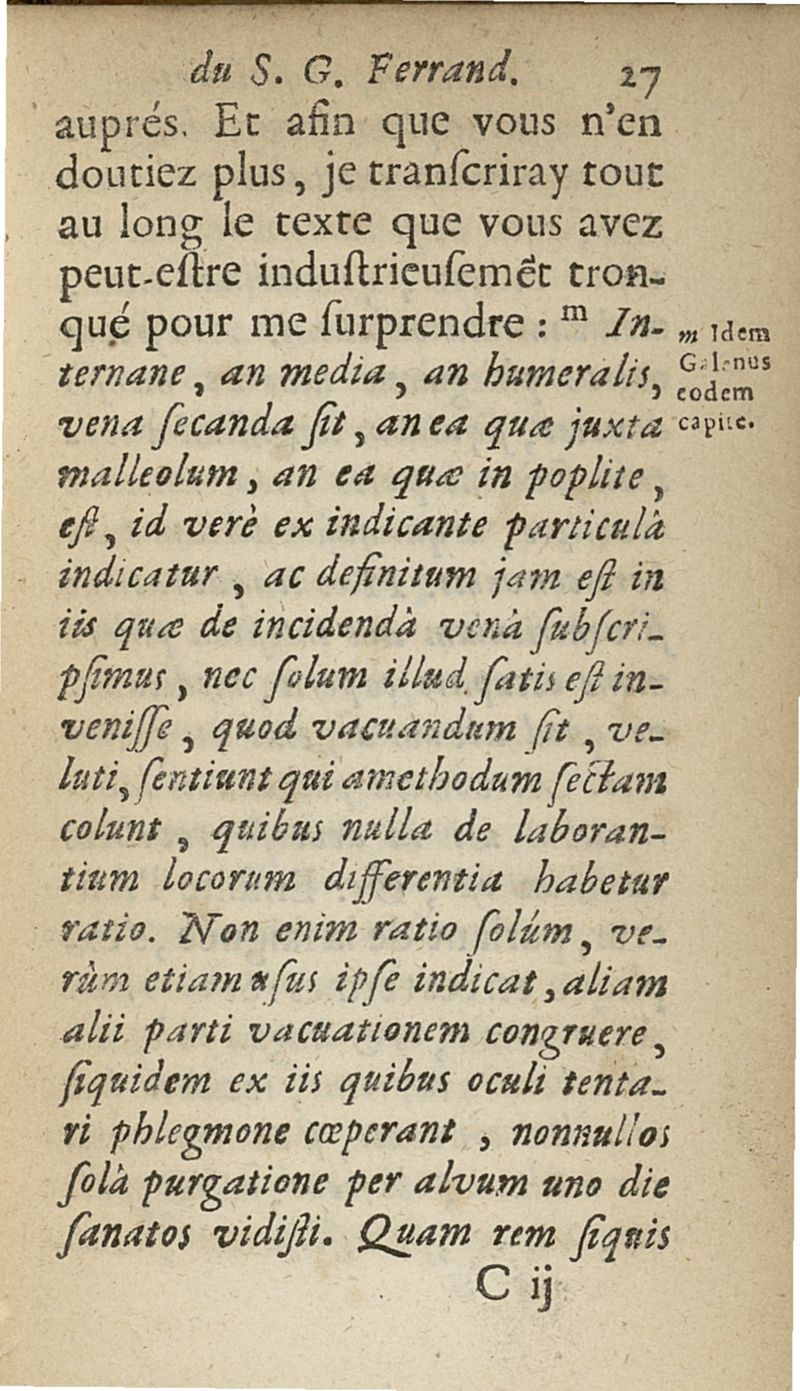 du S. G. Ferrand. 27
auprés. Et afin que vous n'en
doutiez plus, je tranſcriray tout
au long le texte que vous avez
peut-eſtre induſtrieuſemẽt tron-
qué pour me ſurprendre : m In-
ternane, an media, an humeralis,
vena ſecanda ſit, an ea quæ juxta
malleolum, an ea quæ in poplite,
eſt, id verè ex indicante particulà
indicatur, ac definitum jam eſt in
iis quæ de incidendà venà ſubſcri-
pſimus, nec ſolum illud ſatis eſt in-
veniſſe, quod vacuandum ſit, ve-
luti, ſentiunt qui amethodum ſectam
colunt, quibus nulla de laboran-
tium locorum differentia habetur
ratio. Non enim ratio ſolúm, ve-
rùm etiam uſus ipſe indicat, aliam
alii parti vacuationem congruere,
ſiquidem ex iis quibus oculi tenta-
ri phlegmone cœperant, nonnullos
ſolà purgatione per alvum uno die
ſanatos vidiſti. Quam rem ſiquis
C ij
m Idem
Galenus
eodem
capite.